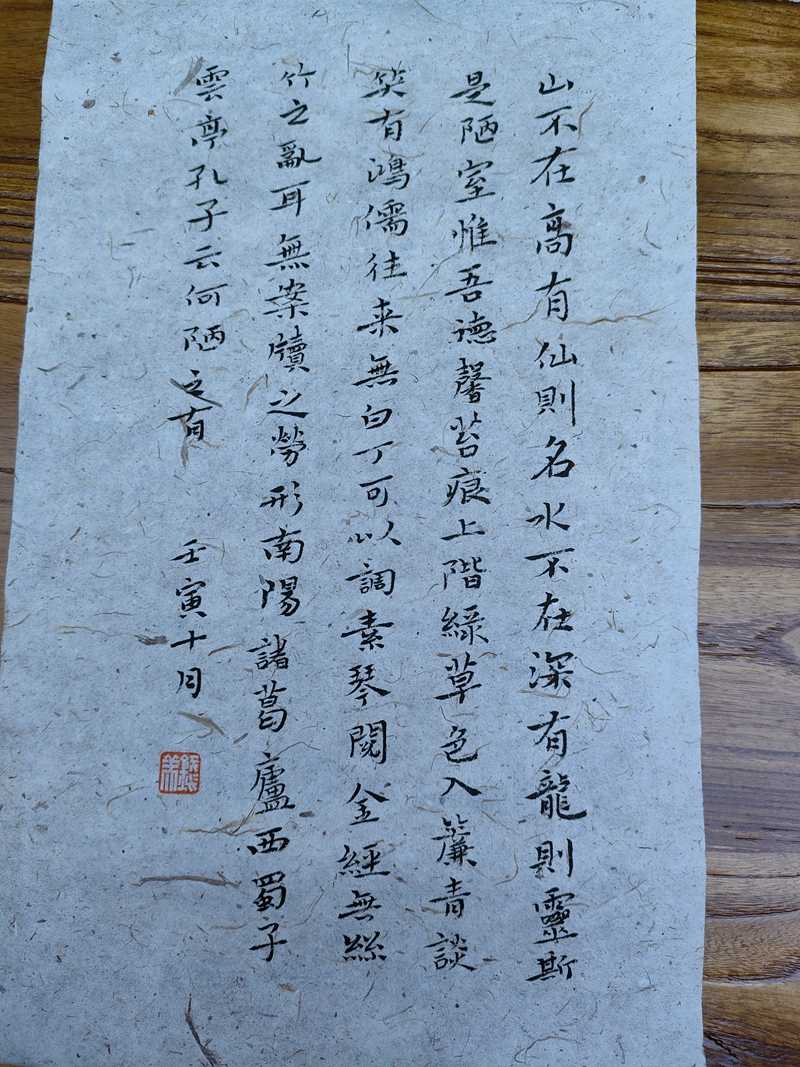 山不在高有仙則名水不在深有龍則靈斯
是陋室惟吾德馨苔痕上階綠草色入簾青談
笑有鴻儒往来無白丁可以調素琴閱金經無絲
竹之亂耳無案牘之勞形南陽諸葛廬西蜀子
雲亭孔子云何陋之有
壬寅十月